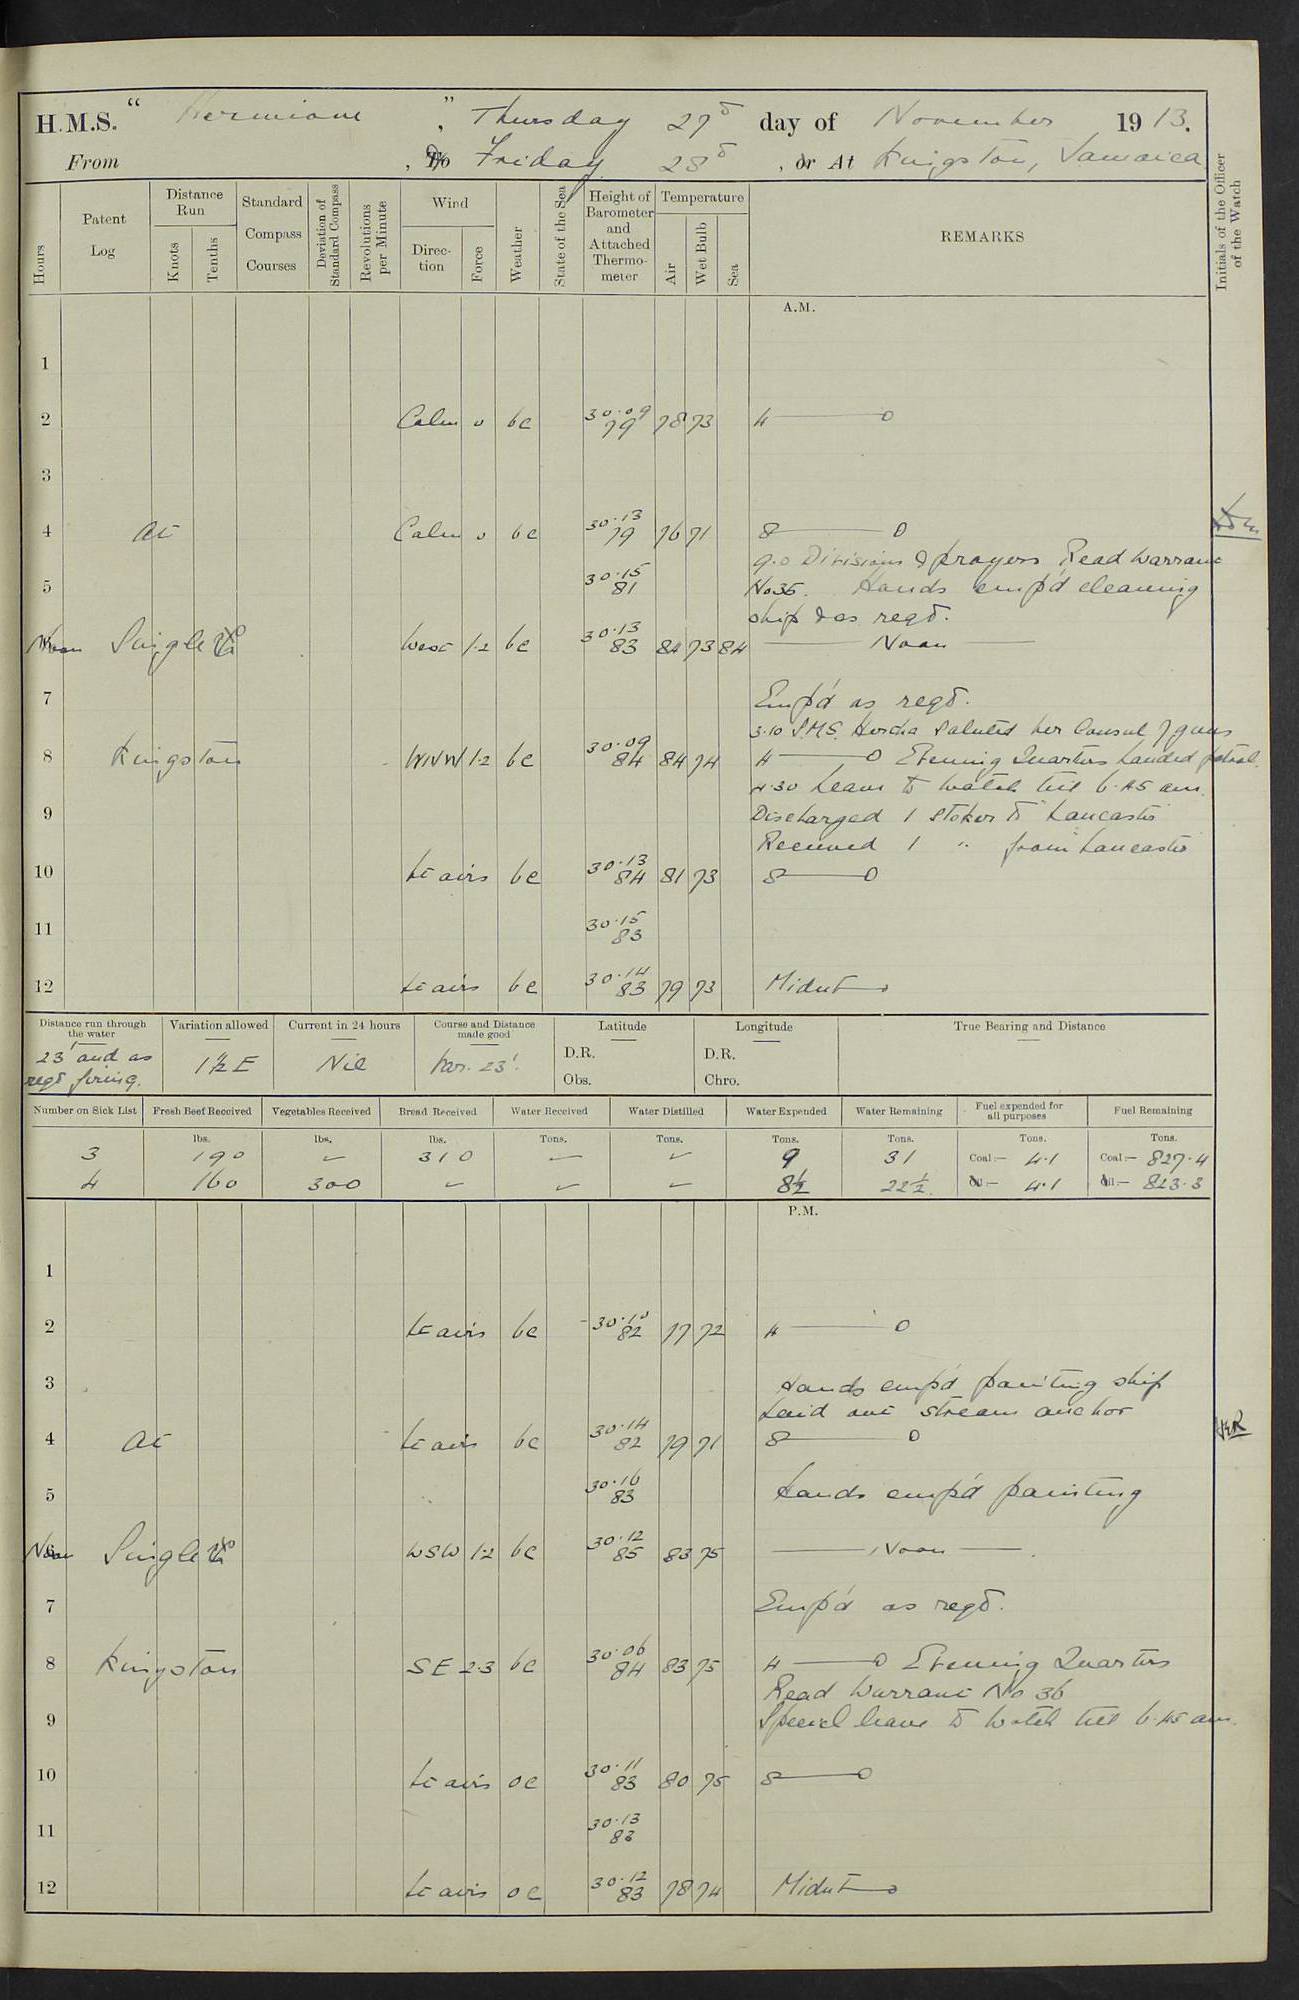 H.M.S. “ Hermione ”, Thursday 27th day of November 1913.
From , To & Friday 28th , or At Kingston, Jamaica
Hours
Patent Log
Distance Run
Knots
Tenths
Standard Compass Courses
Deviation of Standard Compass
Revolutions per Minute
Wind
Direction
Force
Weather
State of the Sea
Height of Barometer and Attached Thermometer
Temperature
Air
Wet Bulb
Sea
REMARKS
Initials of the Officer of the Watch
A.M.
1
2 Calm 0 bc 30.09 79 78 73 4 —— 0
3
4 At Calm 0 bc 30.13 79 76 71 8 —— 0
9.0 Divisions & prayers Read Warrant
5 30.15 81 No 35. Hands emp'd cleaning
ship & as reqd.
Noon Single Ⴛ West 1.2 bc 30.13 83 84 73 84 —— Noon ——
7 Emp'd as reqd.
3.10 S.M.S. Hertha Saluted her Consul 7 guns
8 Kingston WNW 1.2 bc 30.09 84 84 74 4 —— 0 Evening Quarters Landed patrol.
4.30 Leave to watch till 6.45 am.
9 Discharged 1 Stoker to Lancaster
Received 1 " from Lancaster
10 Lt airs bc 30.13 84 81 73 8 —— 0
11 30.15 83
12 Lt airs bc 30.14 83 79 73 Midnt —
Distance run through the water
23' and as reqd firing.
Variation allowed
1½ E
Current in 24 hours
Nil
Course and Distance made good
Var. 23'.
Latitude
D.R.
Obs.
Longitude
D.R.
Chro.
True Bearing and Distance
Number on Sick List Fresh Beef Received Vegetables Received Bread Received Water Received Water Distilled Water Expended Water Remaining Fuel expended for all purposes Fuel Remaining
lbs. lbs. lbs. Tons. Tons. Tons. Tons. Tons. Tons.
3 190 – 310 – – 9 31 Coal:— 4.1 Coal:— 827.4
4 160 300 – – – 8½ 22½ Oil:— 4.1 Oil:— 823.3
P.M.
1
2 Lt airs bc 30.10 82 77 72 4 —— 0
3 Hands emp'd painting ship
Laid out stream anchor
4 At Lt airs bc 30.14 82 79 71 8 —— 0
5 30.16 83 Hands emp'd painting
Noon Single WSW 1.2 bc 30.12 85 83 75 —— Noon ——
7 Emp'd as reqd.
8 Kingston SE 2.3 bc 30.06 84 83 75 4 —— 0 Evening Quarters
Read Warrant No 36
9 Special leave to watch till 6.45 am.
10 Lt airs oc 30.11 83 80 75 8 —— 0
11 30.13 83
12 Lt airs oc 30.12 83 78 74 Midnt —